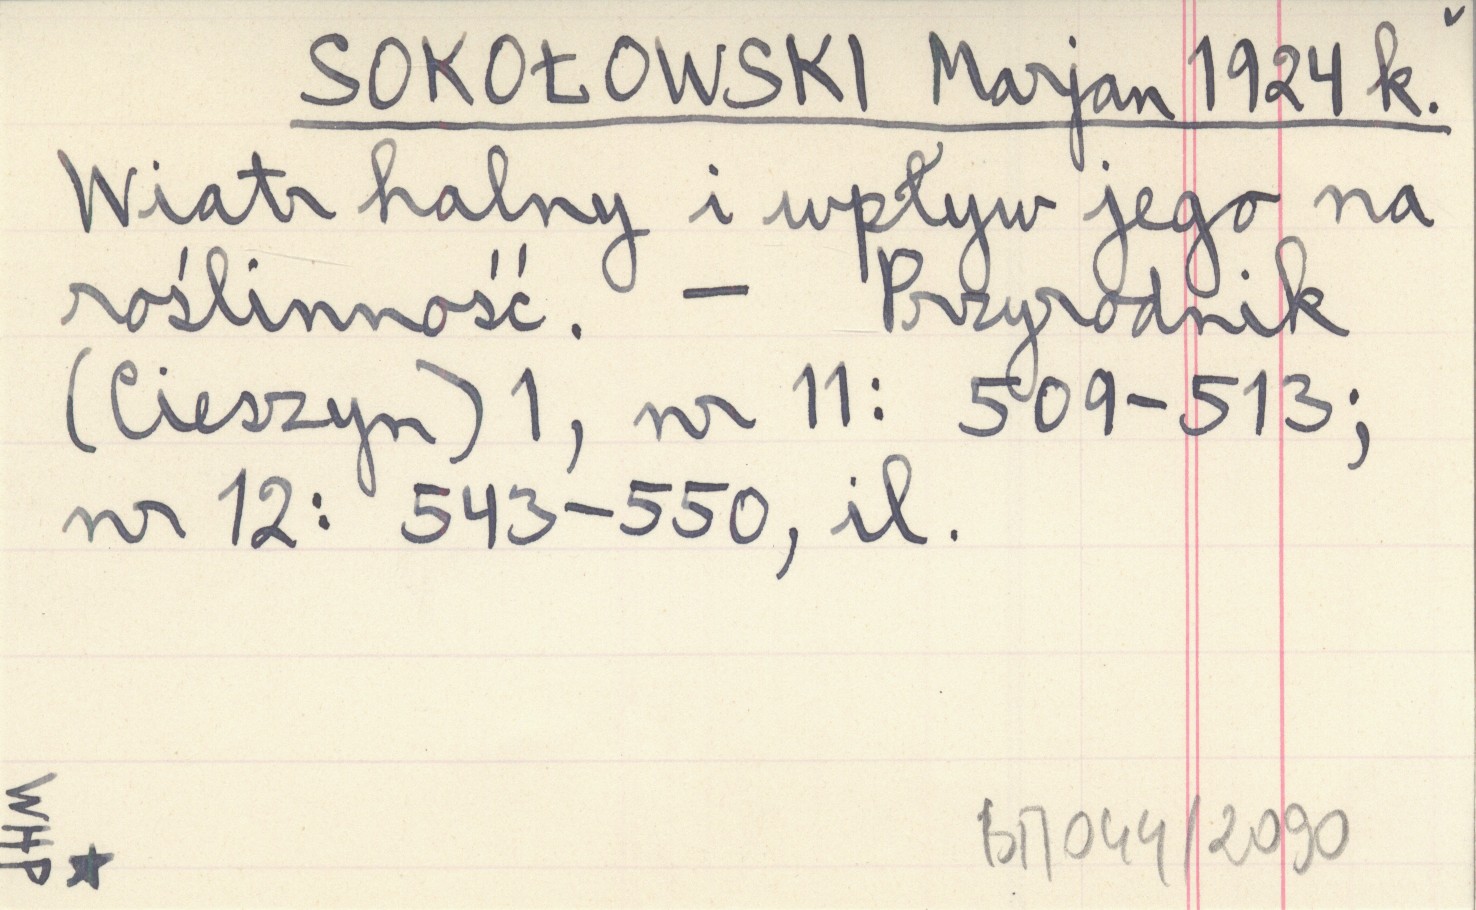 SOKOŁOWSKI Marjan 1924 k.
Wiatr halny i wpływ jego na
roślinność. – Przyrodnik
(Cieszyn) 1, nr 11: 509–513;
nr 12: 543–550, il.
WHP
БП 044/2090